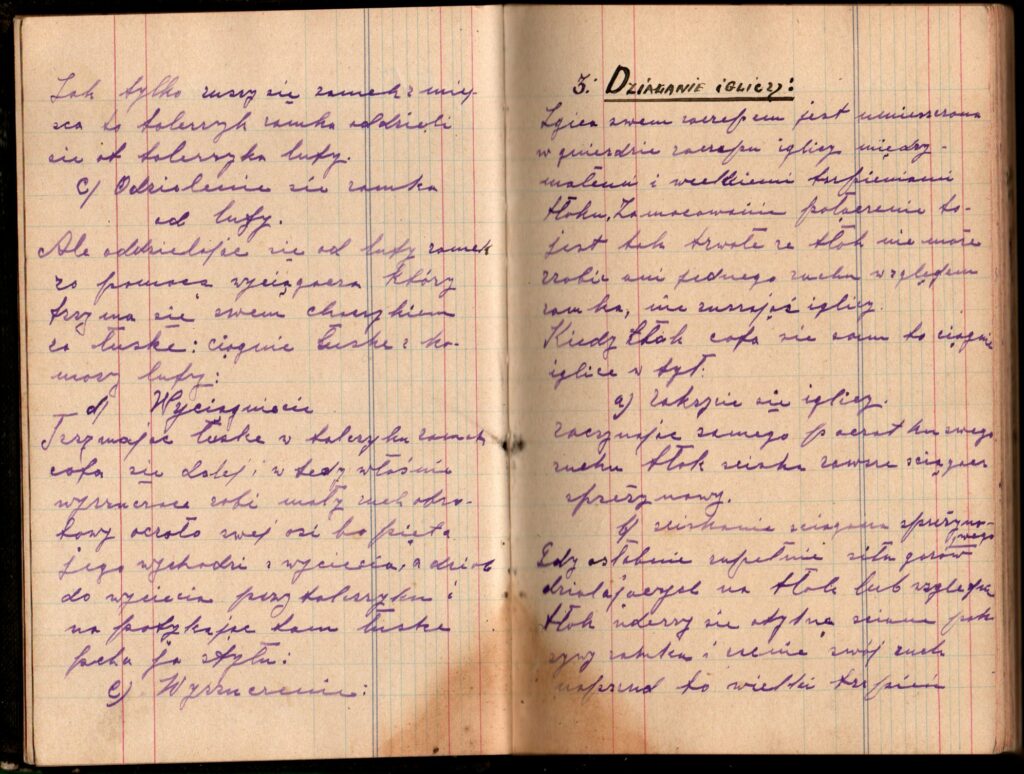 Jak tylko ruszy się zamek z miej
sca to talerzyk zamka oddzieli
sie ot talerzyka lufy.
C) Odzielenie sie zamka
od lufy.
Ale oddzielajac się od lufy zamek
za pomoca wyciągacza który
trzyma się swem chaczykiem
za łuske: ciągnie łuske z ko-
mory lufy:
d) Wyciągniecie
Trzymajac łuske w talerzyku zamek
cofa sie dalej i w tedy właśnie
wyrzucacz robi mały ruch obro-
towy ocroło swej osi bo pięta
jego wychodzi z wyciecia, a dziob
do wyciecia przy talerzyku i
na potykajac tam łuske
pcha ja styłu:
e) Wyrzucenie:
3. DZIAŁANIE IGLICZY:
Iglica swem zaczepem jest umieszczona
w gnieździe zaczepu iglicy między-
małemi i wielkiemi trzpieniami
tłoku. Zamocowanie połączenie to-
jest tak trwałe ze tłok nie może
zrobic ani jednego ruchu względem
zamka, nie ruszając iglicy.
Kiedy tłok cofa się sam to ciągnie
iglice w tył:
a) zakrycie się iglicy.
zaczynajac samego poczatku swego
ruchu tłok sciska zawsze sciągacz
sprężynowy.
b) sciskanie sciagacza sprężyno-
wego
Gdy osłabnie zupełnie siła gazów
działających na tłok lub względnie
tłok uderzy się o tylną sciane pok
rywy zamka i zmieni swój ruch
naprzud to wielki trzpień